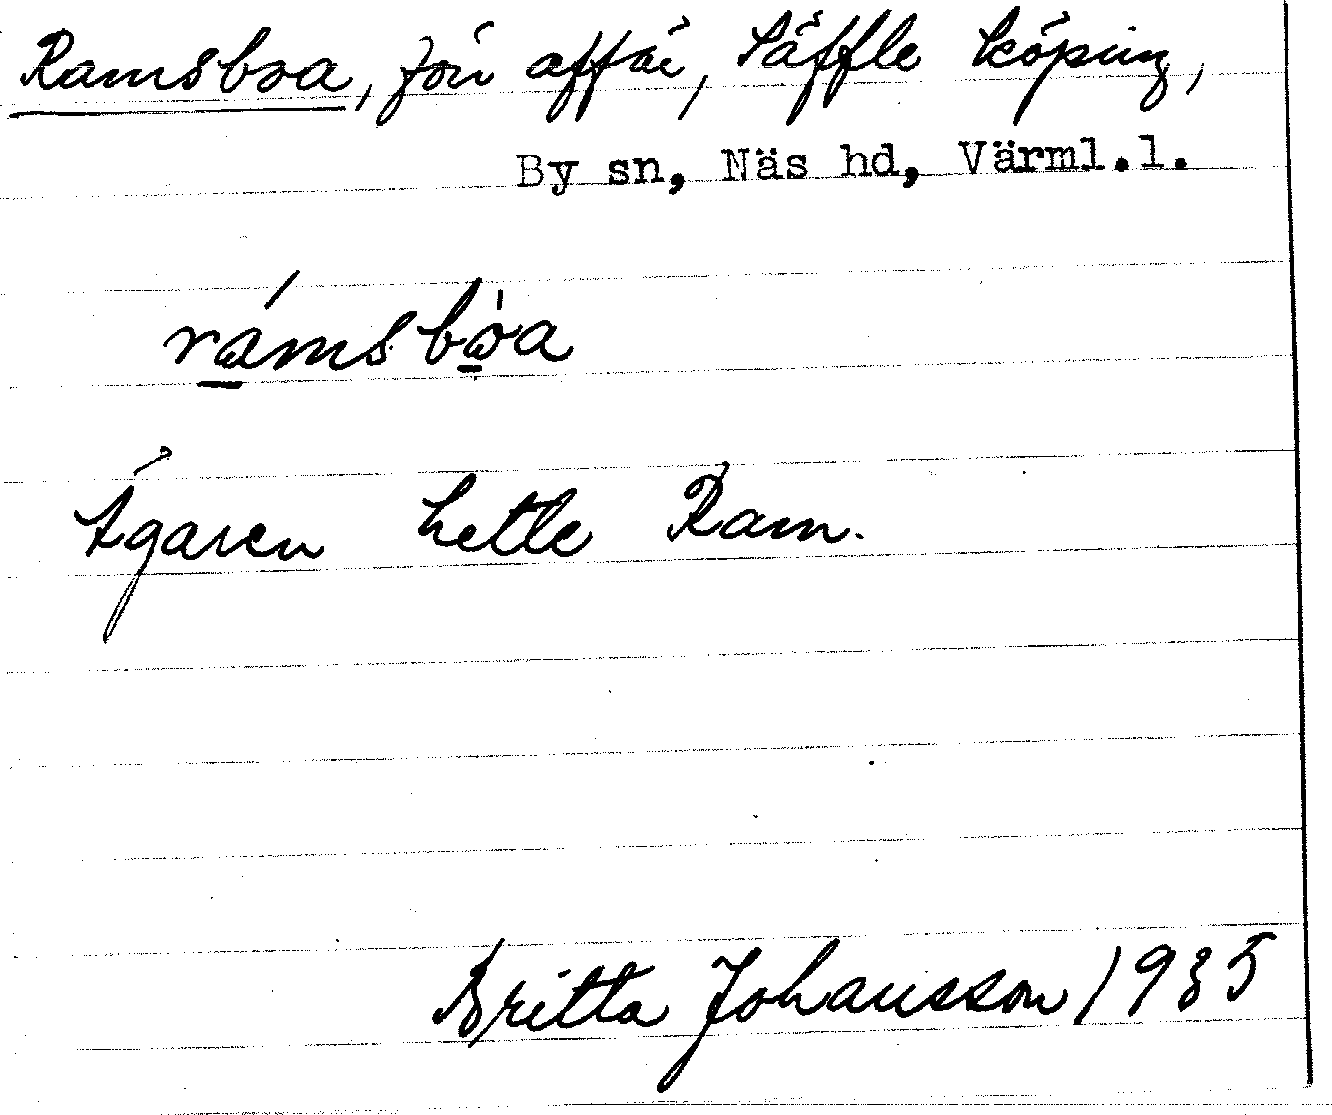 Ramsboa, förr affär, Säffle köping,
By sn, Näs hd, Värml.l.
rámsbòa
Ägaren hette Ram.
Britta Johansson 1935